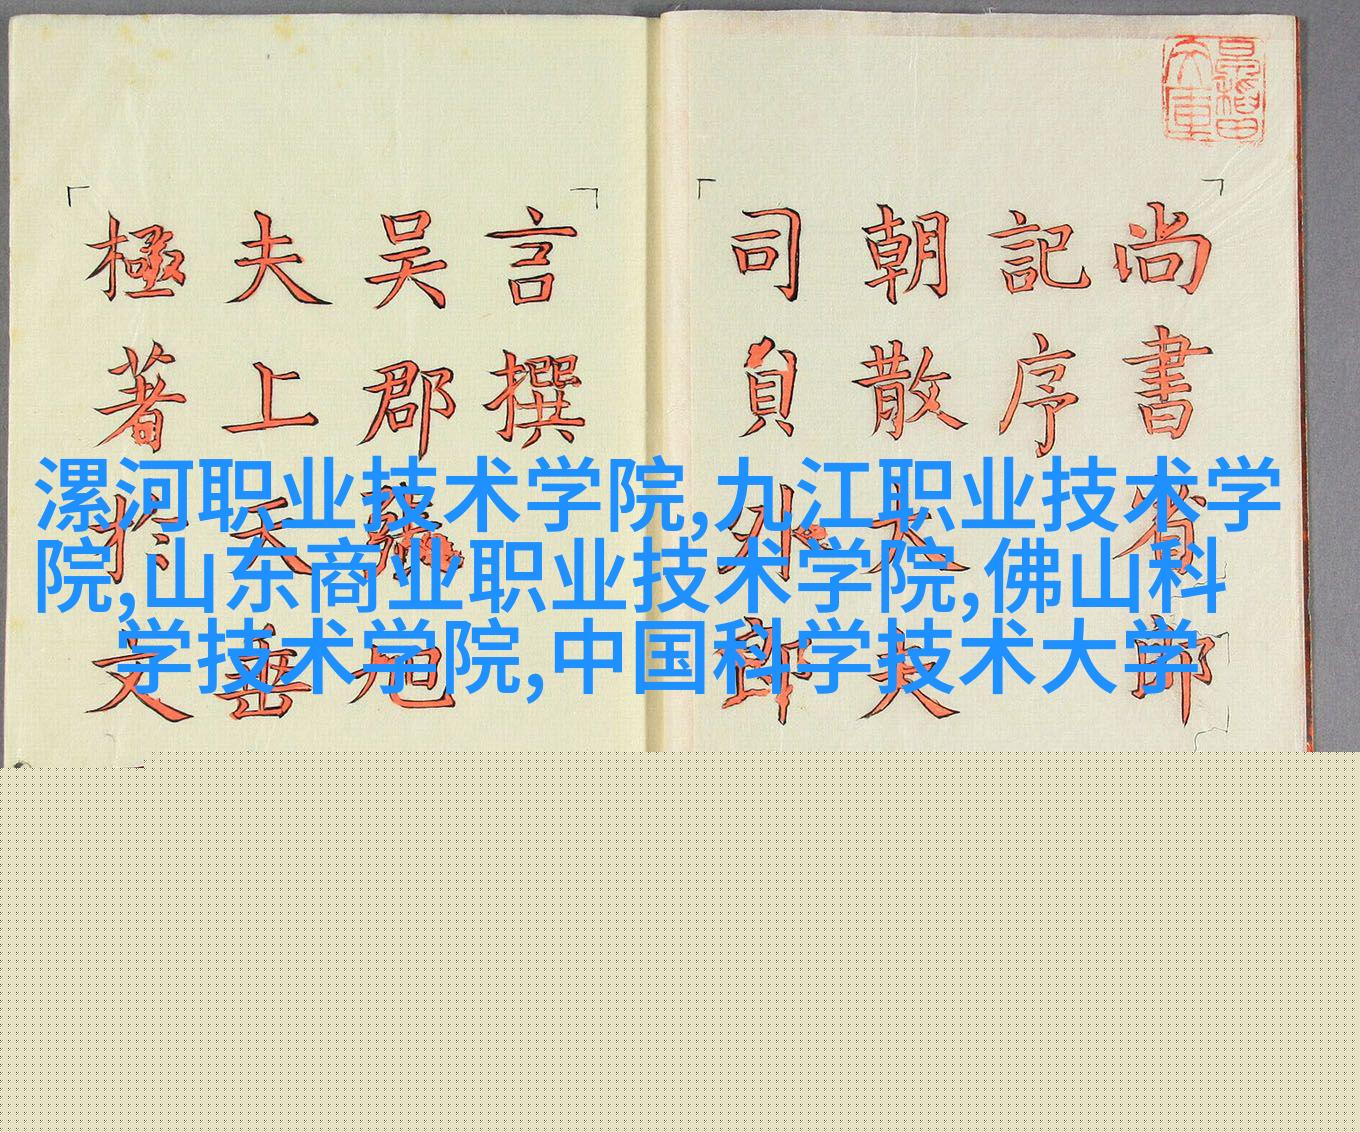 尚書省郎
記序
朝散大夫
司員外郎
言撰
吳郡張旭
夫上天垂
極著於文
漯河职业技术学院,九江职业技术学
院,山东商业职业技术学院,佛山科
学技术学院,中国科学技术大学